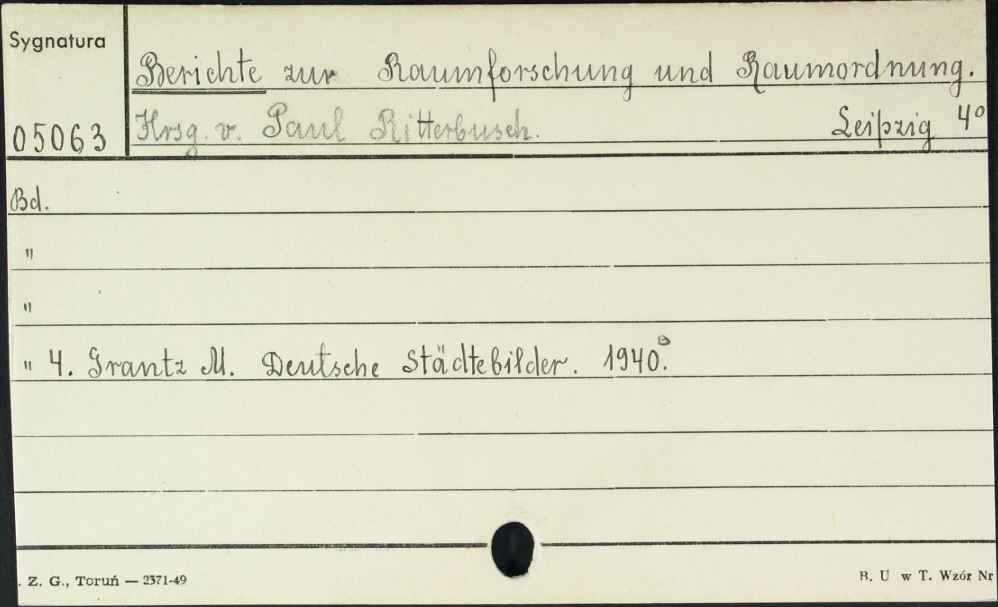 Sygnatura
Berichte zur Raumforschung und Raumordnung.
05063 Hrsg. v. Paul Ritterbusch. Leipzig 4°
Bd.
"
"
" 4. Grantz M. Deutsche Städtebilder. 1940.
. Z. G., Toruń — 2371-49 B. U w T. Wzór Nr